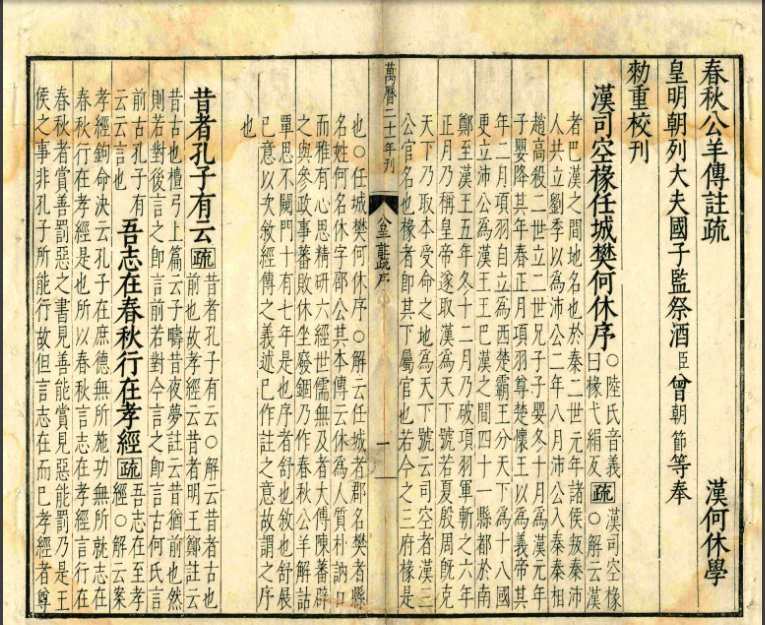 春秋公羊傳註疏
漢何休學
皇明朝列大夫國子監祭酒臣曾朝節等奉
勑重校刊
漢司空掾任城樊何休序
○陸氏音義
曰掾弋絹反
疏
漢司空掾
○解云漢
者巴漢之間地名也於秦二世元年諸侯叛秦沛
人共立劉季以爲沛公二年八月沛公入秦秦相
趙高殺二世立二世兄子子嬰冬十月爲漢元年
子嬰降其年春正月項羽尊楚懷王以爲義帝其
年二月項羽自立爲西楚霸王分天下爲十八國
更立沛公爲漢王王巴漢之間四十一縣都於南
鄭至漢王五年冬十二月乃破項羽軍斬之六年
正月乃稱皇帝遂取漢爲天下號若夏殷周旣克
天下乃取本受命之地爲天下號云司空者漢三
公官名也掾者即其下屬官也若今之三府掾是
萬曆二十一年刊
公羊註疏序
一
也○任城樊何休序○解云任城者郡名樊者縣
名姓何名休字邵公其本傳云休爲人質朴訥口
而雅有心思精研六經世儒無及者大傅陳蕃辟
之與參政事蕃敗休坐廢錮乃作春秋公羊解詁
覃思不闚門十有七年是也序者舒也敘也舒展
已意以次敘經傳之義述已作註之意故謂之序
也
昔者孔子有云
疏
昔者孔子有云○解云昔者古也
前也故孝經云昔者明王鄭註云
昔古也檀弓上篇云予疇昔夜夢註云昔猶前也然
則若對後言之即言前若對今言之即言古何氏言
前古孔子有
云云言也
吾志在春秋行在孝經
疏
吾志在至孝
經○解云案
孝經鉤命決云孔子在庶德無所施功無所就志在
春秋行在孝經是也所以春秋言志在孝經言行在
春秋者賞善罰惡之書見善能賞見惡能罰乃是王
侯之事非孔子所能行故但言志在而已孝經者尊